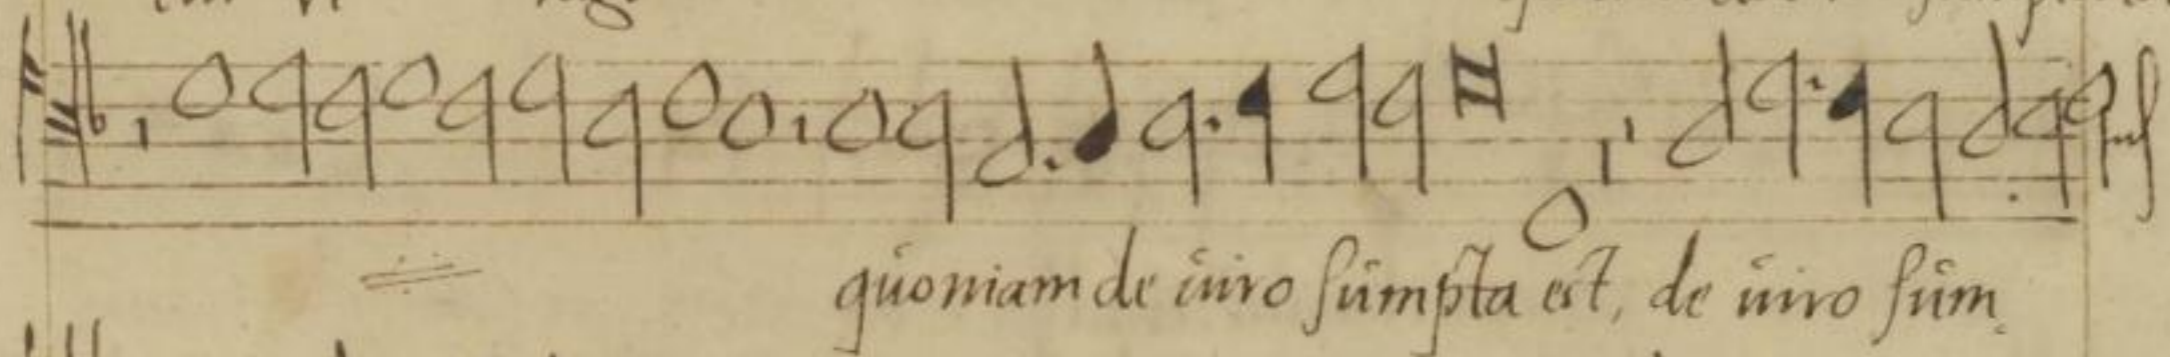 quoniam de uiro sumpta est, de uiro sum